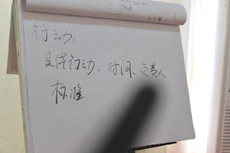 行动:
具体行动、时间、负责人
标准